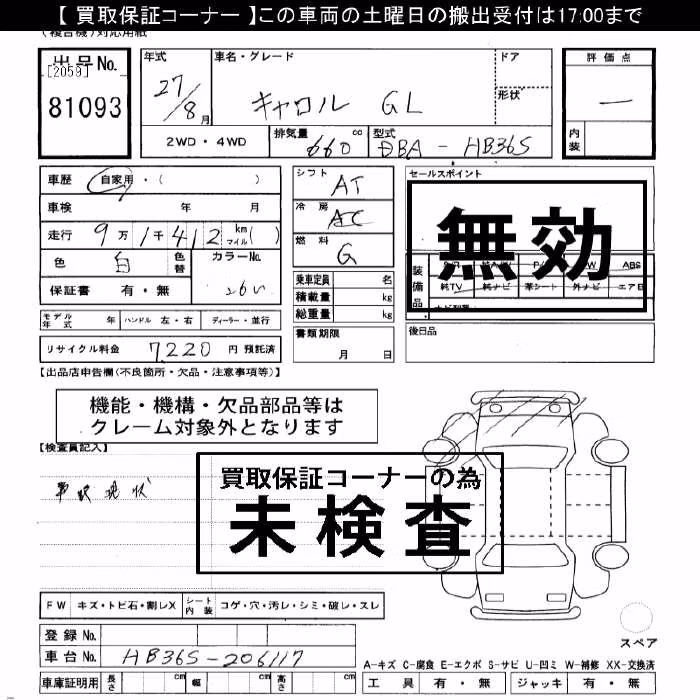 【 買取保証コーナー 】この車両の土曜日の搬出受付は17:00まで
(複合機)対応用紙
出品No.
[2059]
81093
年式
27/8月
車名・グレード
キャロル GL
ドア
形状
評価点
—
内装
2WD・4WD
排気量 660 cc
型式 DBA - HB36S
車歴 自家用・( )
車検 年 月
走行 9万1千412 km マイル( )
色 白 色替 カラーNo. 26U
保証書 有・無
シフト AT
冷房 AC
燃料 G
乗車定員 名
積載量 kg
総重量 kg
書類期限
月 日
セールスポイント
無効
装備品
ABS
純TV 純ナビ 革シート 外ナビ エアB
後日品
モデル年式 年 ハンドル 左・右 ディーラー・並行
リサイクル料金 7,220 円 預託済
【出品店申告欄(不良箇所・欠品・注意事項等)】
機能・機構・欠品部品等は
クレーム対象外となります
【検査員記入】
買取保証コーナーの為
未検査
車取現状
FW キズ・トビ石・割レX シート内装 コゲ・穴・汚レ・シミ・破レ・スレ
登録No.
車台No. HB36S-206117
車庫証明用 長さ cm 幅 cm 高さ cm
スペア
A-キズ C-腐食 E-エクボ S-サビ U-凹ミ W-補修 XX-交換済
工具 有・無 ジャッキ 有・無